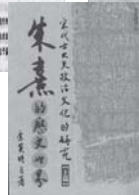 宋代士大夫政治文化的研究
朱熹
的歷史世界
余英時著